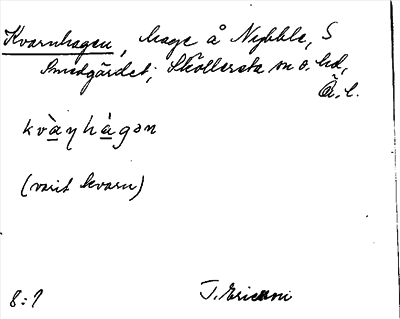 Kvarnhagen, hage å Nybble, S
Smedgärdet; Sköllersta sn o. hd,
Ö. l.
kvàṇhágən
(varit kvarn)
8:1 J. Ericsoni